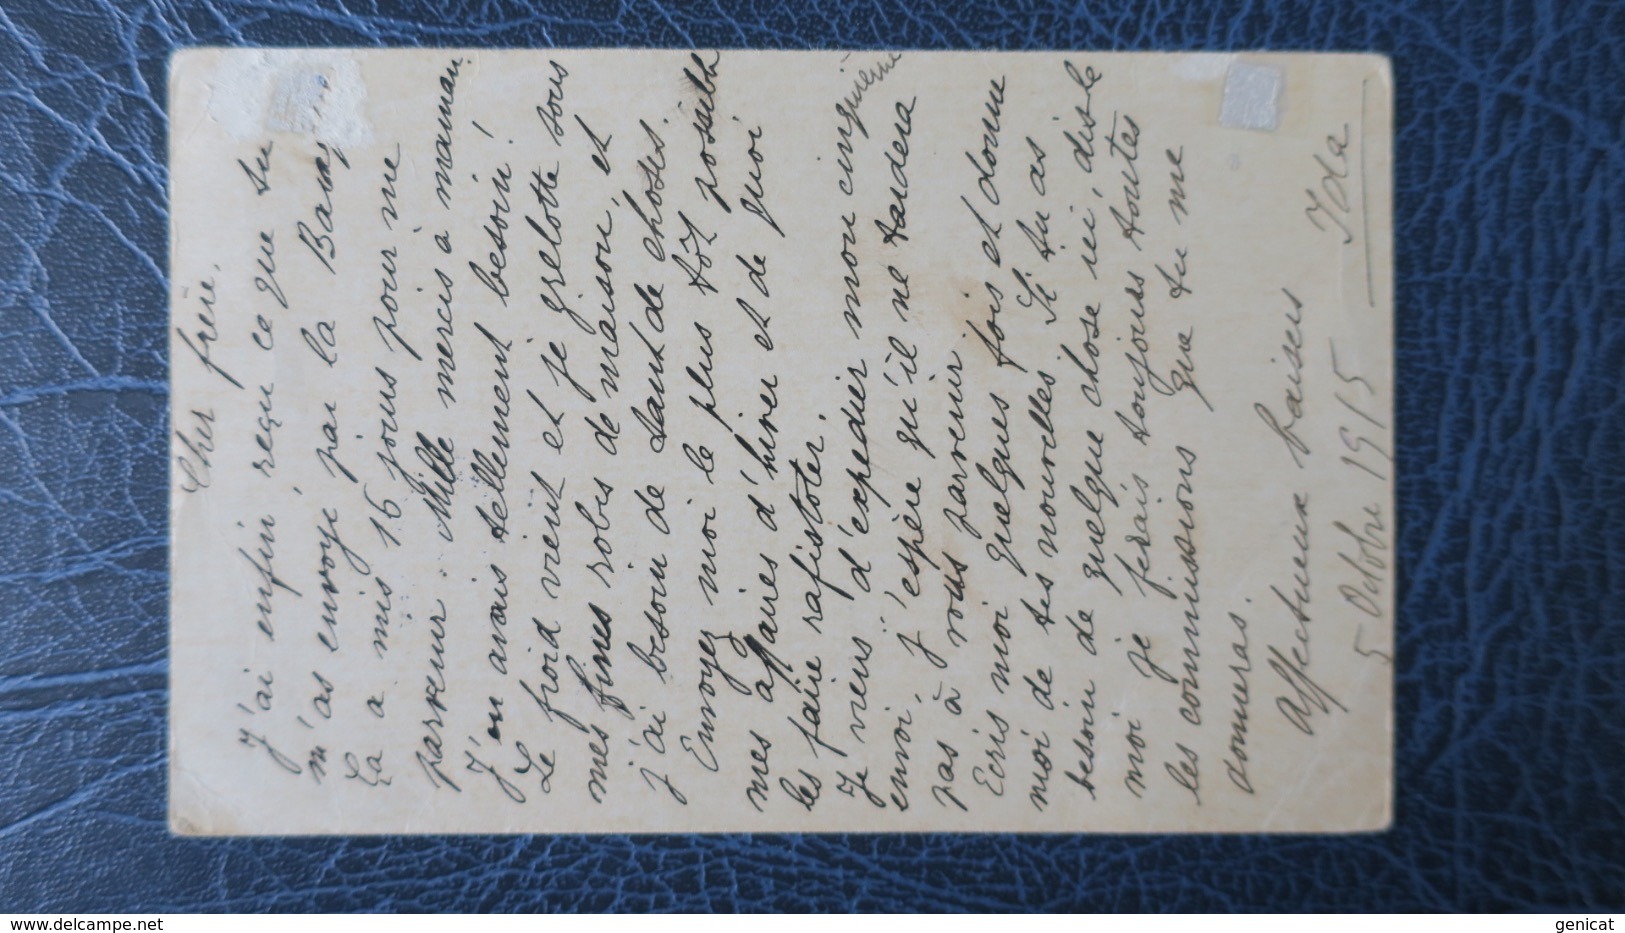 Cher frère.
J'ai enfin reçu ce que tu
m'as envoyé par la
Ça a mis 15 jours pour me
parvenir. Mille mercis à maman.
J'en avais tellement besoin!
Le froid vient et je grelotte sous
mes fines robes de maison, et
j'ai besoin de tant de choses.
Envoyez moi le plus tôt possible
mes affaires d'hiver et de quoi
les faire rafistoler.
Je viens d'expédier mon cinquième
envoi. J'espère qu'il ne tardera
pas à vous parvenir.
Ecris moi quelques fois et donne
moi de tes nouvelles Si tu as
besoin de quelque chose ici, dis le
moi je ferais toujours toutes
les commissions que tu me
donneras.
Affectueux baisers
Ida
5 Octobre 1915
genicat